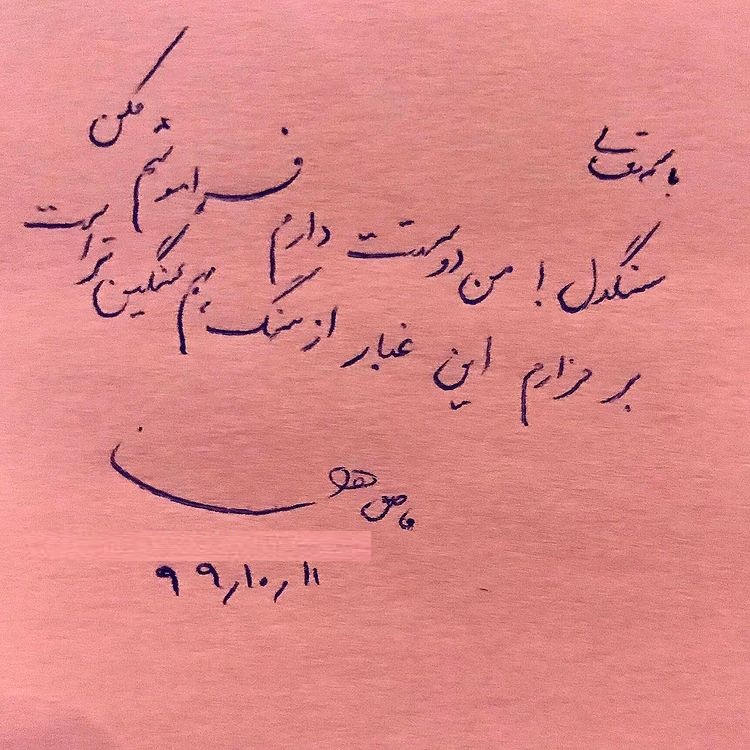 باسمه تعالی
سنگدل! من دوست دارم فراموشم مکن
بر مزارم این غبار از سنگ هم سنگین تر است
فاضل
۹۹٫۱۰٫۱۱